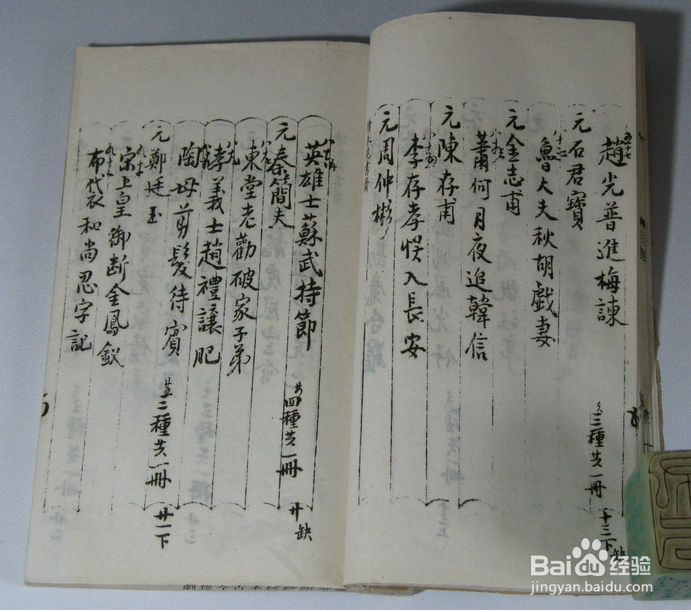 趙光普進梅諫
三種共一冊
十三下
缺
元石君寶
魯大夫秋胡戲妻
元金志甫
蕭何月夜追韓信
元陳存甫
李存孝悮入長安
元周仲彬
英雄士蘇武持節
共四種共一冊
廿
缺
元秦簡夫
東堂老勸破家子弟
孝義士趙禮讓肥
陶母剪髮待賓
共三種共一冊
廿一下
元鄭廷玉
宋上皇御断金鳳釵
布袋和尚忍字記
Baidu经验
jingyan.baidu.com